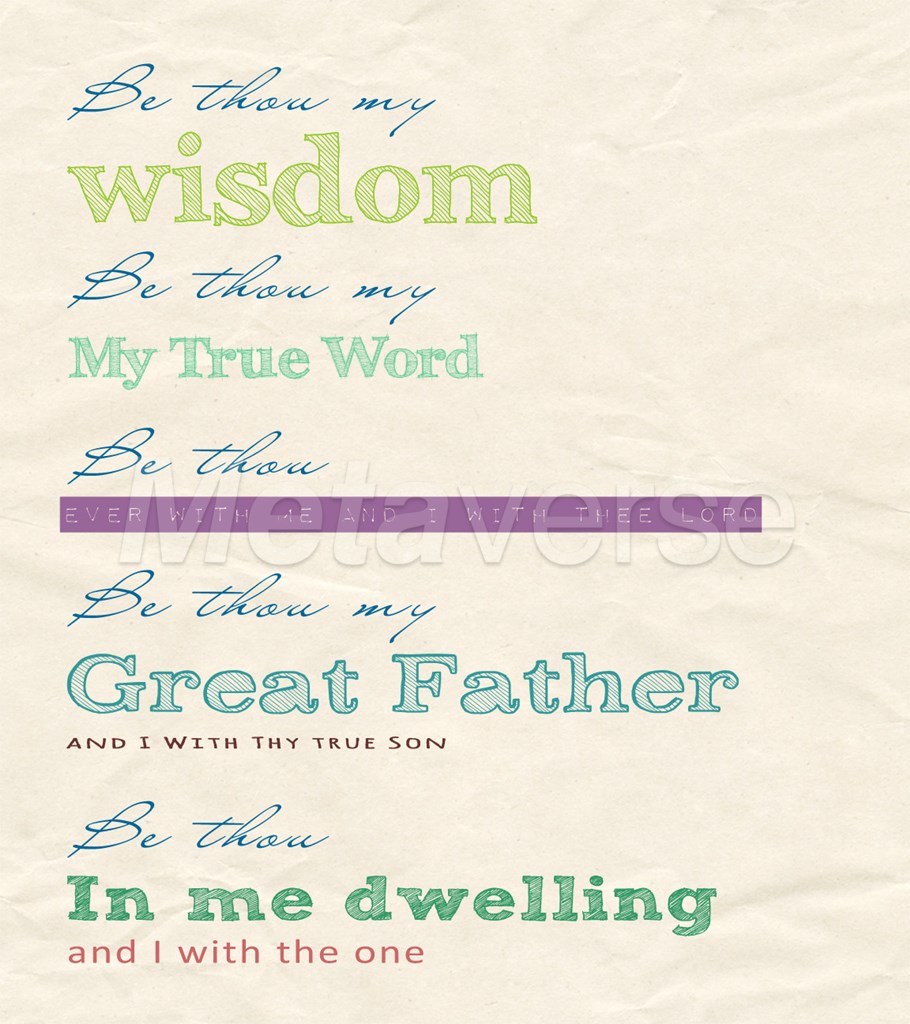 Be thou my
wisdom
Be thou my
My True Word
Be thou
EVER WITH ME AND I WITH THEE LORD
Metaverse
Be thou my
Great Father
AND I WITH THY TRUE SON
Be thou
In me dwelling
and I with the one